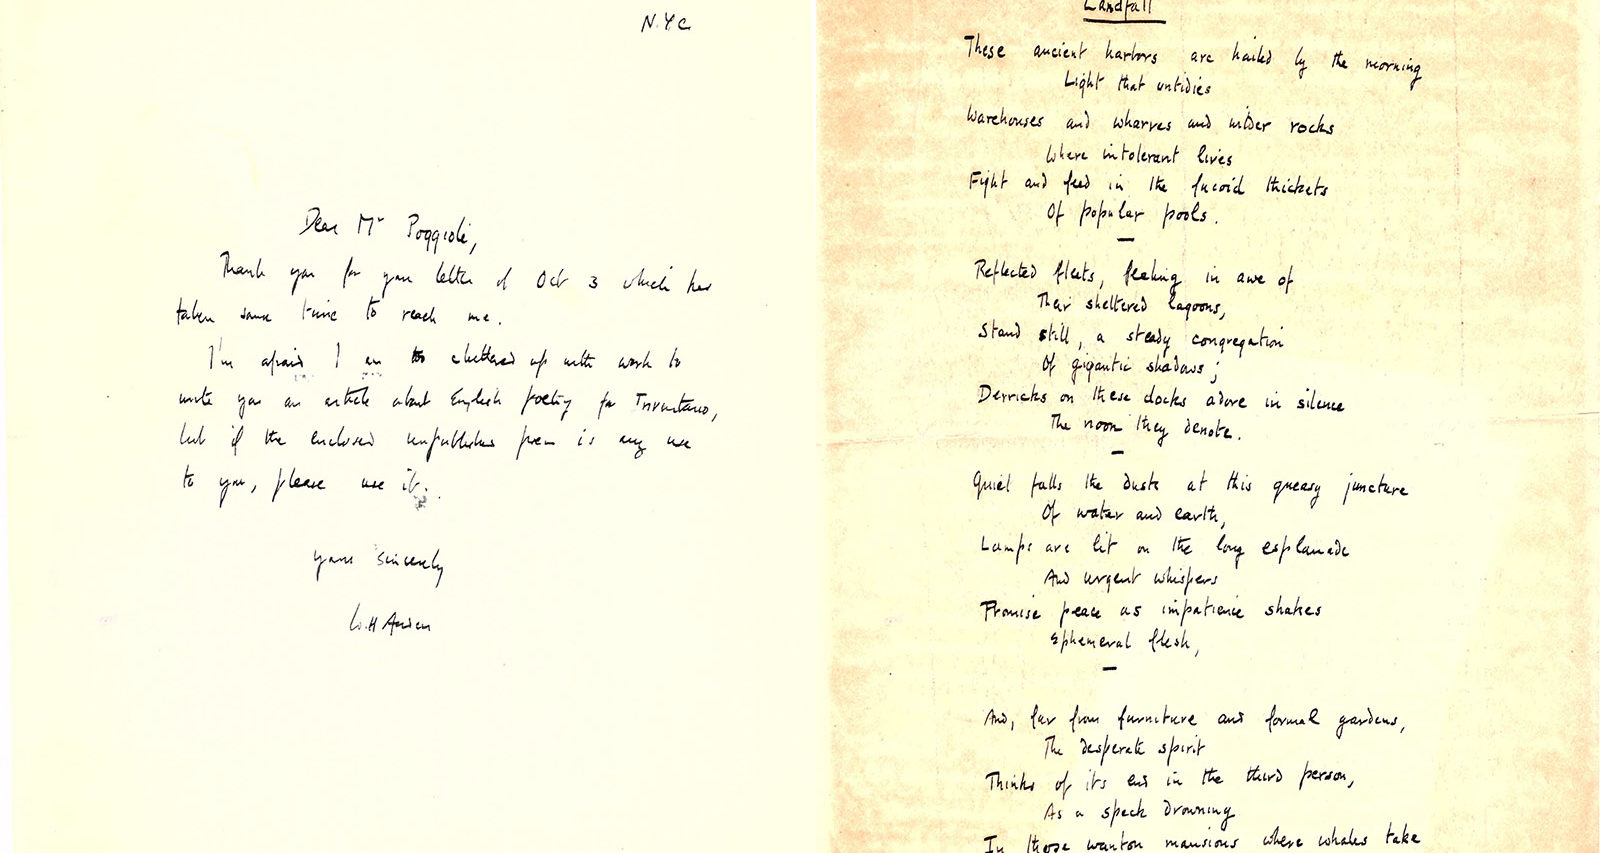 N.Y.C
Dear Mr Poggioli,
Thank you for your letter of Oct 3 which has
taken some time to reach me.
I'm afraid I am too cluttered up with work to
write you an article about English Poetry for Inventario,
but if the enclosed unpublished poem is any use
to you, please use it.
yours sincerely
W.H Auden
Landfall
These ancient harbors are hailed by the morning
Light that untidies
Warehouses and wharves and wilder rocks
Where intolerant lives
Fight and feed in the fucoid thickets
Of popular pools.
—
Reflected fleets, feeling in awe of
Their sheltered lagoons,
Stand still, a steady congregation
Of gigantic shadows;
Derricks on these docks adore in silence
The noon they denote.
—
Quiet falls the dusk at this queasy juncture
Of water and earth,
Lamps are lit on the long esplanade
And urgent whispers
Promise peace as impatience shakes
Ephemeral flesh,
—
And, far from furniture and formal gardens,
The desperate spirit
Thinks of its end in the third person,
As a speck drowning
In those wanton mansions where whales take